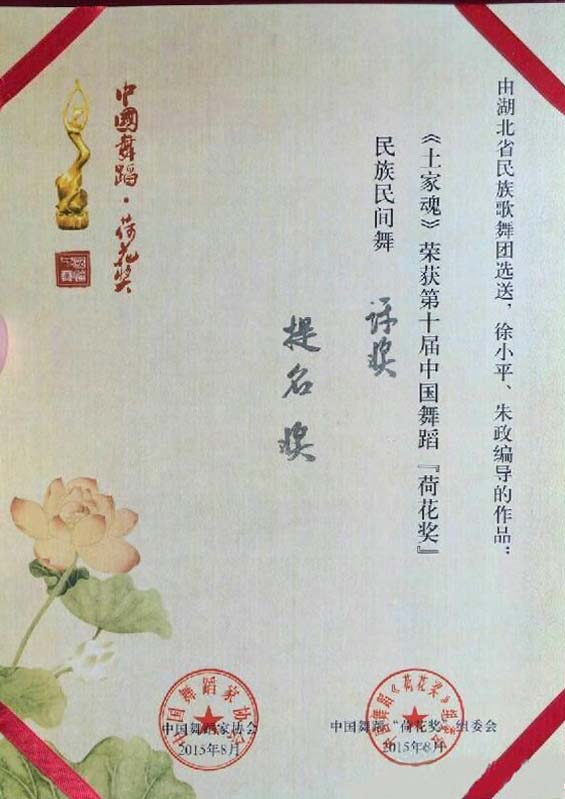 由湖北省民族歌舞团选送，徐小平、朱政编导的作品：
《土家魂》荣获第十届中国舞蹈『荷花奖』
民族民间舞 评奖
提名奖
中國舞蹈·荷花奖
中国舞蹈家协会
中国舞蹈家协会
2015年8月
中国舞蹈“荷花奖”组委会
2015年8月